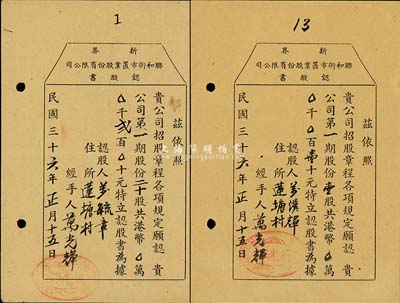 1
新界
聯和街市置業股份有限公司
認股書
茲依照
貴公司招股章程各項規定願認 貴
公司第一期股份二十股共港幣0萬
0千弍百0十元特立認股書為據
認股人
住所蓮塘村
經手人萬光輝
民國三十六年正月十五日
13
新界
聯和街市置業股份有限公司
認股書
茲依照
貴公司招股章程各項規定願認 貴
公司第一期股份壹股共港幣0萬
0千0百壹十元特立認股書為據
認股人
住所蓮塘村
經手人萬光輝
民國三十六年正月十五日